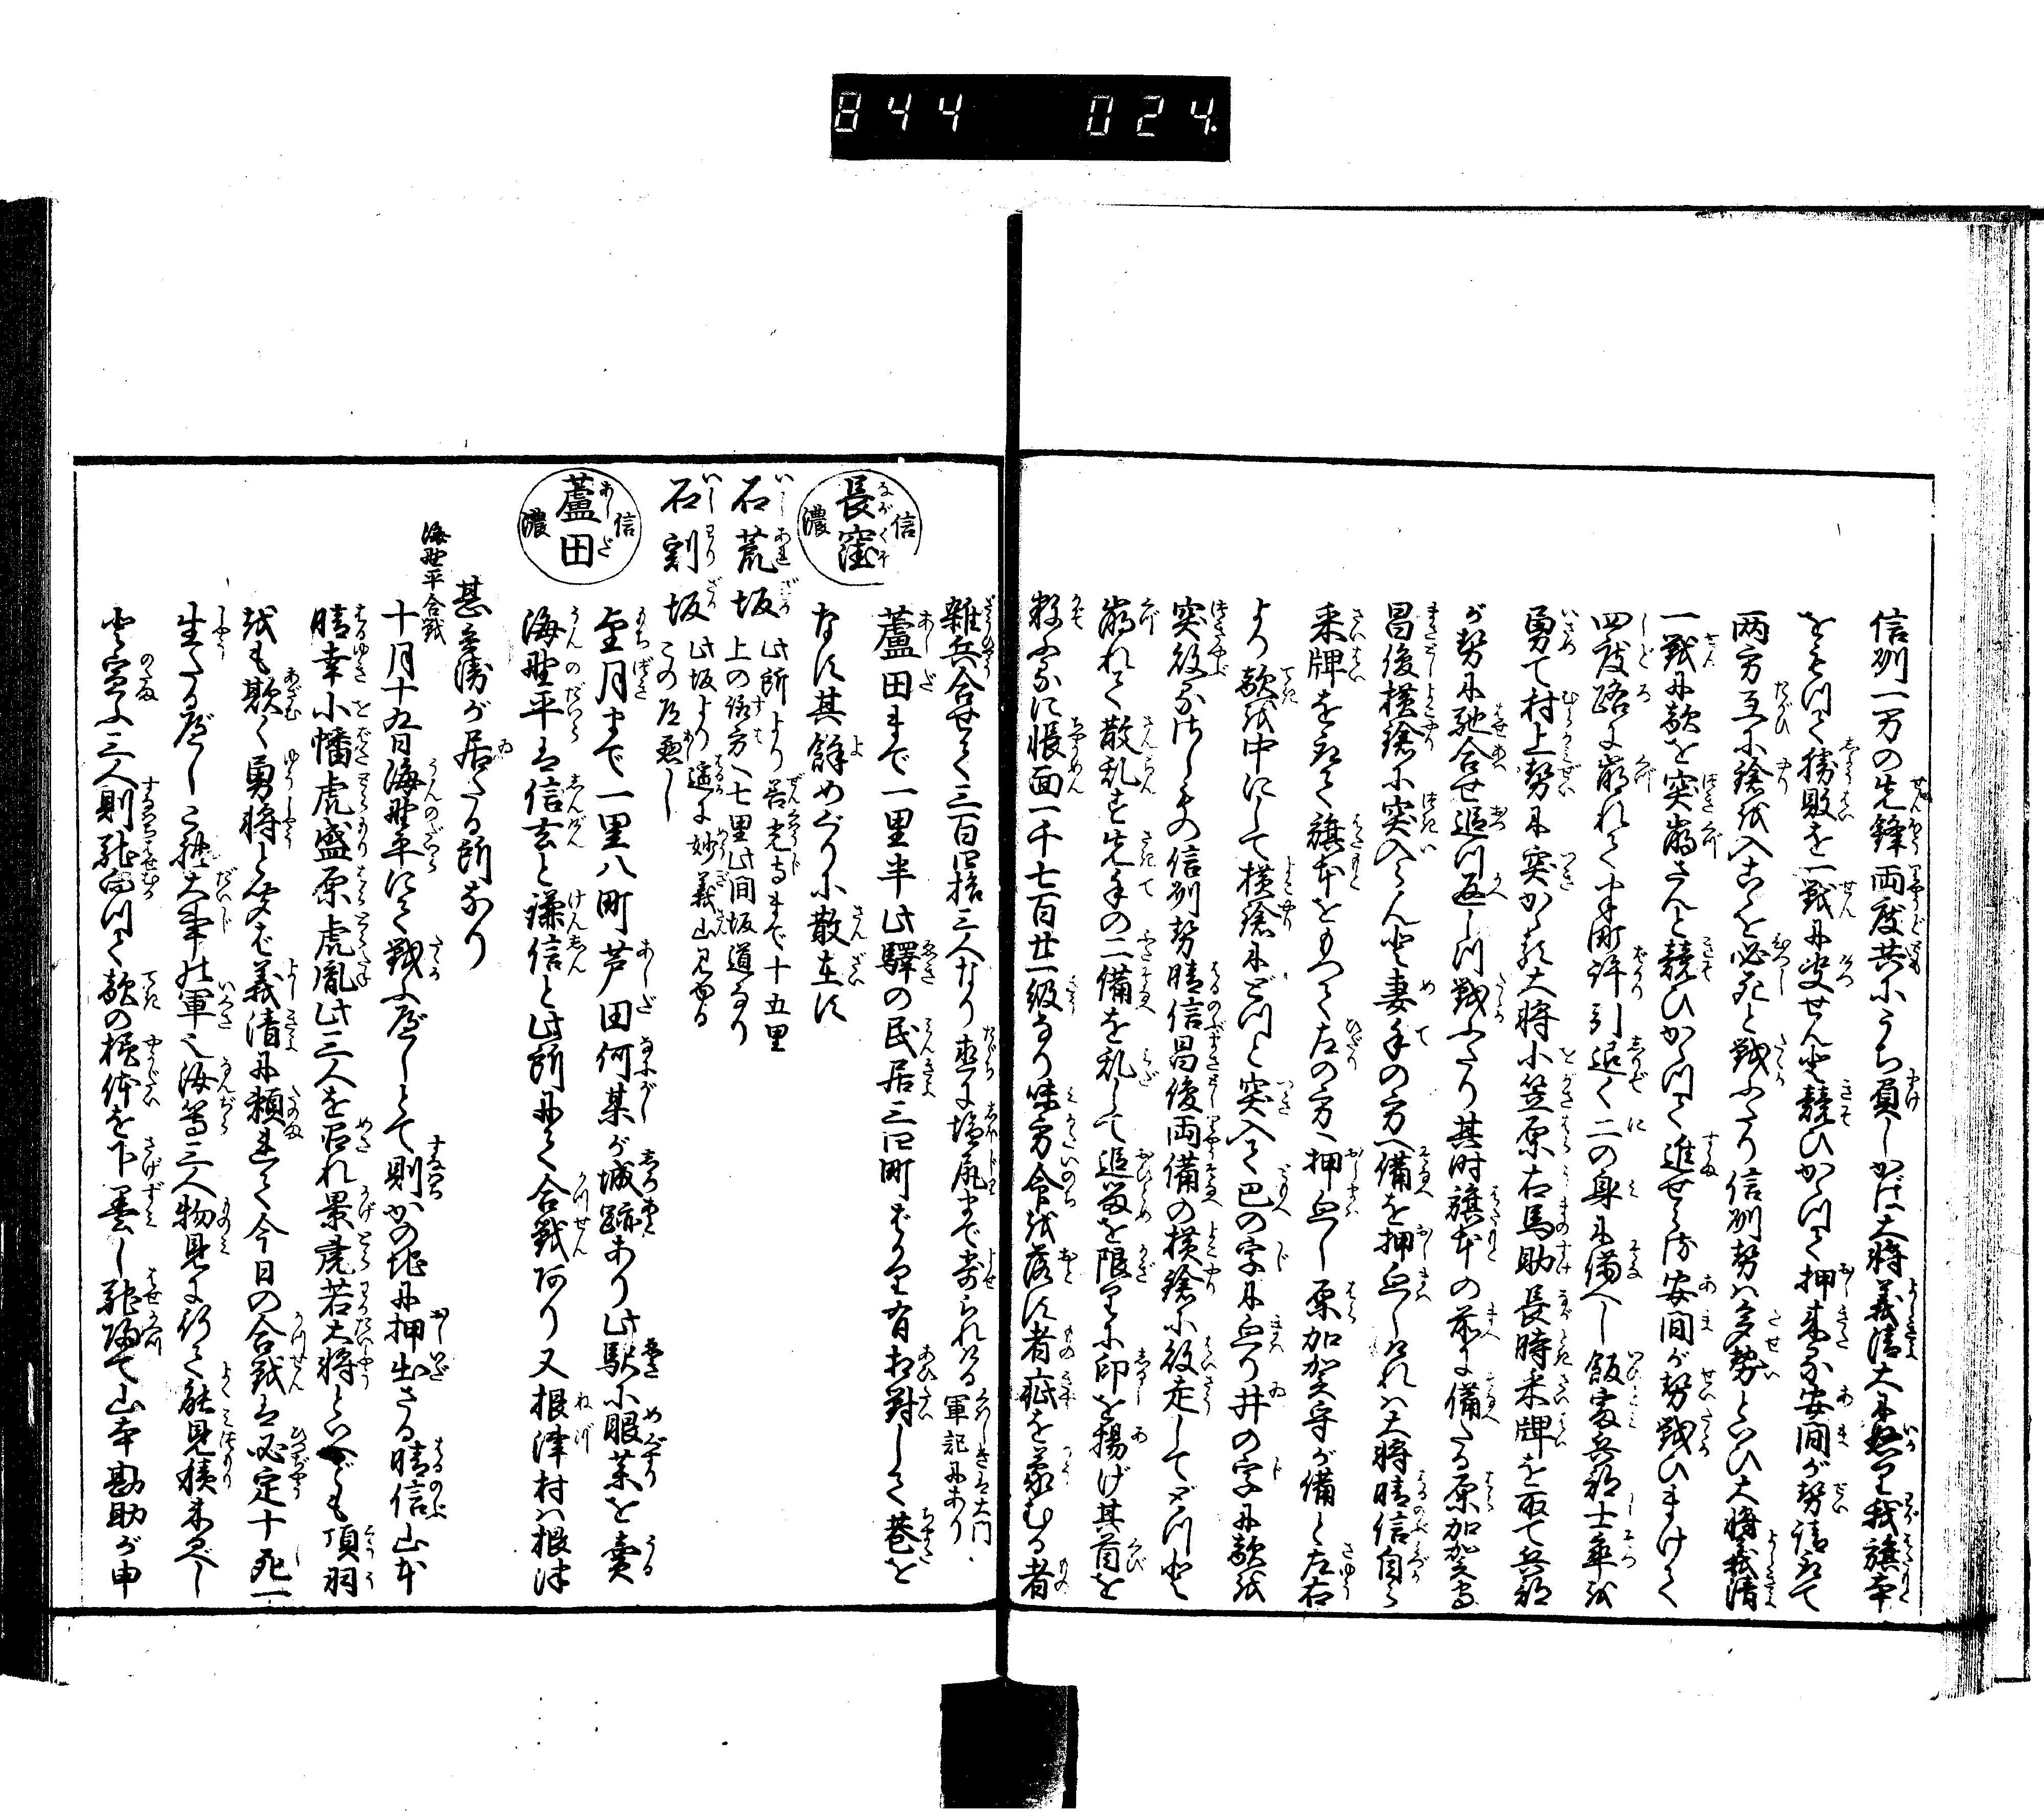 844 024.
信州一万の先鋒両度共にうち負しかば大将義清大に怒り我旗本
をもつて勝敗を一戦に決せんと競ひかつて押来る安間が勢請取て
両方互に鎗を入あひ必死と戦ふたり信州勢ハ多勢といひ大将義清
一戦に敵を突崩さんと競ひかつて進せる故安間が勢戦ひまけて
四度路に崩れて半町許引退く二の身に備へし飯富兵部士卒を
勇て村上勢に突かゝる大将小笠原右馬助長時采牌を取て兵部
が勢に馳合せ追つ返しつ戦ふたり其時旗本の前に備たる原加賀守
昌俊横鎗に突入らんと妻手の方へ備を押出しけれハ大将晴信自ら
采牌を取て旗本をもつて左の方へ押出し原加賀守が備と左右
より敵を中にして横鎗にどつと突入て巴の字に廻り井の字に敵を
突破る故しもの信州勢晴信昌俊両備の横鎗に敗走してダツと
崩れて散乱を先手の二備を乱して追留を限りに印を揚げ其首を
数ふるに帳面一千七百廿一級なり味方命を落す者疵を蒙むる者
雑兵合せて三百四拾三人なり直に塩尻まで寄られける 軍記に大門にあり
長窪 信濃
蘆田まで一里半此驛の民居三四町ばかり有相對して巷を
なす其餘めぐりに散在す
石荒坂 此所より善光寺まで十五里
上の諏方へ七里此間坂道なり
石割坂 此坂より遥に妙義山見ゆる
この道悪し
蘆田 信濃
望月まで一里八町芦田何某が城跡あり此駅に眼薬を賣
海野平は信玄と謙信と此所にて合戦阿り又根津村ハ根津
甚平が居たる所なり
海野平合戦
十月十九日海野平にて戦ふべしとて則かの地に押出さる晴信山本
晴幸小幡虎盛原虎胤此三人を召れ景虎若大将といへども項羽
を欺く勇将と聞ば義清に頼まれて今日の合戦は必定十死一
生たるべしこゝ大事の軍也汝等三人物見に行て能見積来るべし
と宣ふ三人則馳向つて敵の様体を下墨し馳帰て山本勘助が申